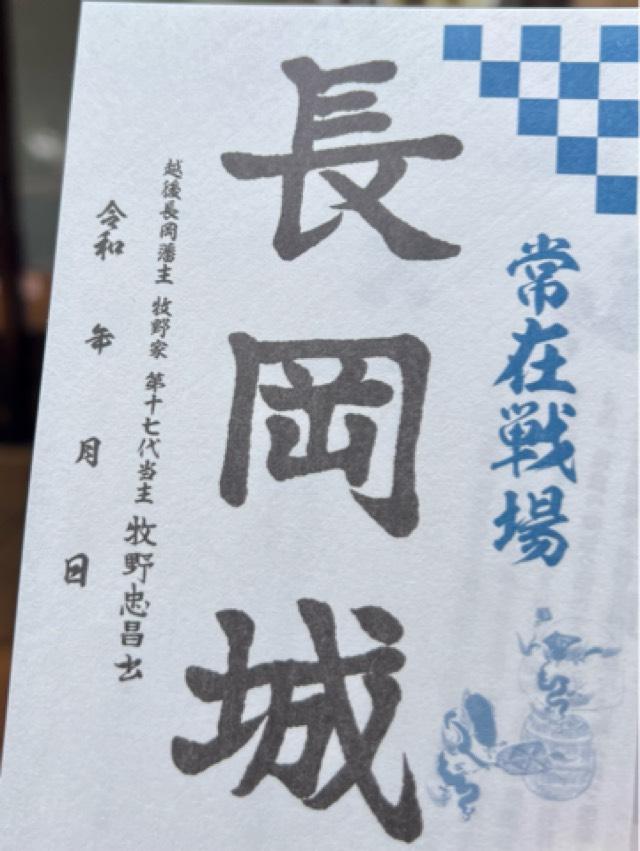 常在戦場
長岡城
越後長岡藩主 牧野家 第十七代当主 牧野忠昌書
令和 年 月 日